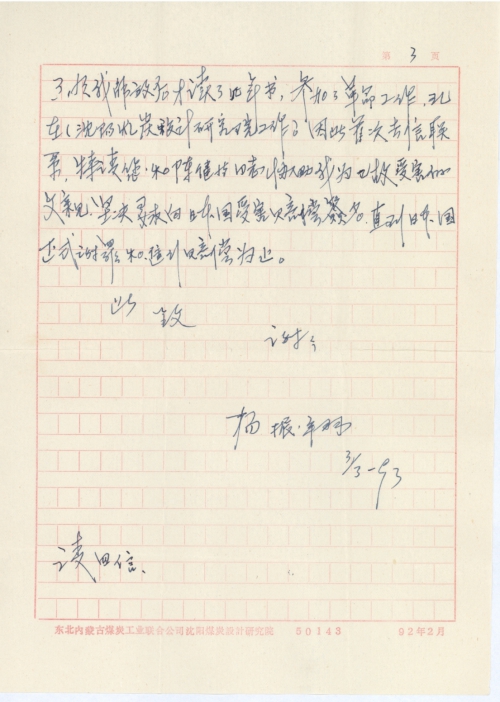 第 3 页
了,候我解放后才读了几年书,参加了革命工作,现
在(沈阳煤炭设计研究院工作)因此首次去信联
系,特请您和陈健指同志协助我为已故受害的
父亲兄,坚决要求向日本国受害赔偿签名,直到日本国
正式谢罪和得到赔偿为止。
此 致
谢々
杨 振
3/3-93
请回信.
东北内蒙古煤炭工业联合公司沈阳煤炭设计研究院 50143 92年2月